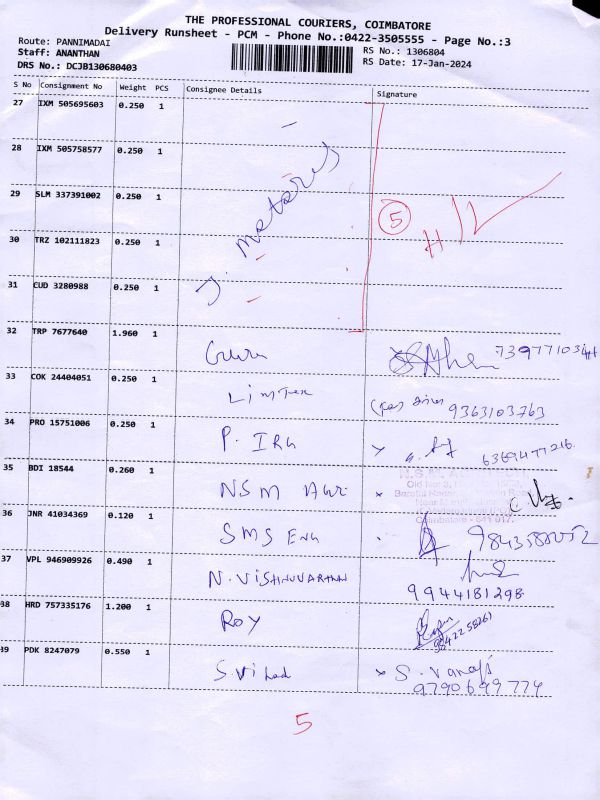 THE PROFESSIONAL COURIERS, COIMBATORE
Delivery Runsheet - PCM - Phone No.:0422-3505555 - Page No.:3
Route: PANNIMADAI
RS No.: 1306804
Staff: ANANTHAN
RS Date: 17-Jan-2024
DRS No.: DCJB130680403
S No Consignment No Weight PCS Consignee Details Signature
27 IXM 505695603 0.250 1
28 IXM 505758577 0.250 1
29 SLM 337391002 0.250 1
30 TRZ 102111823 0.250 1
31 CUD 3280988 0.250 1
J. motors
5
32 TRP 7677640 1.960 1 Guru
33 COK 24404051 0.250 1 Limtex 9363103763
34 PRO 15751006 0.250 1 P. IRU
35 BDI 18544 0.260 1 NSM Agri.
Coimbatore - 641 017.
36 JNR 41034369 0.120 1 SMS ENG
37 VPL 946909926 0.490 1 N. VISHNUVARTHAN 9944181298
38 HRD 757335176 1.200 1 ROY
39 PDK 8247079 0.550 1 S. Vanaji
9790699774
5